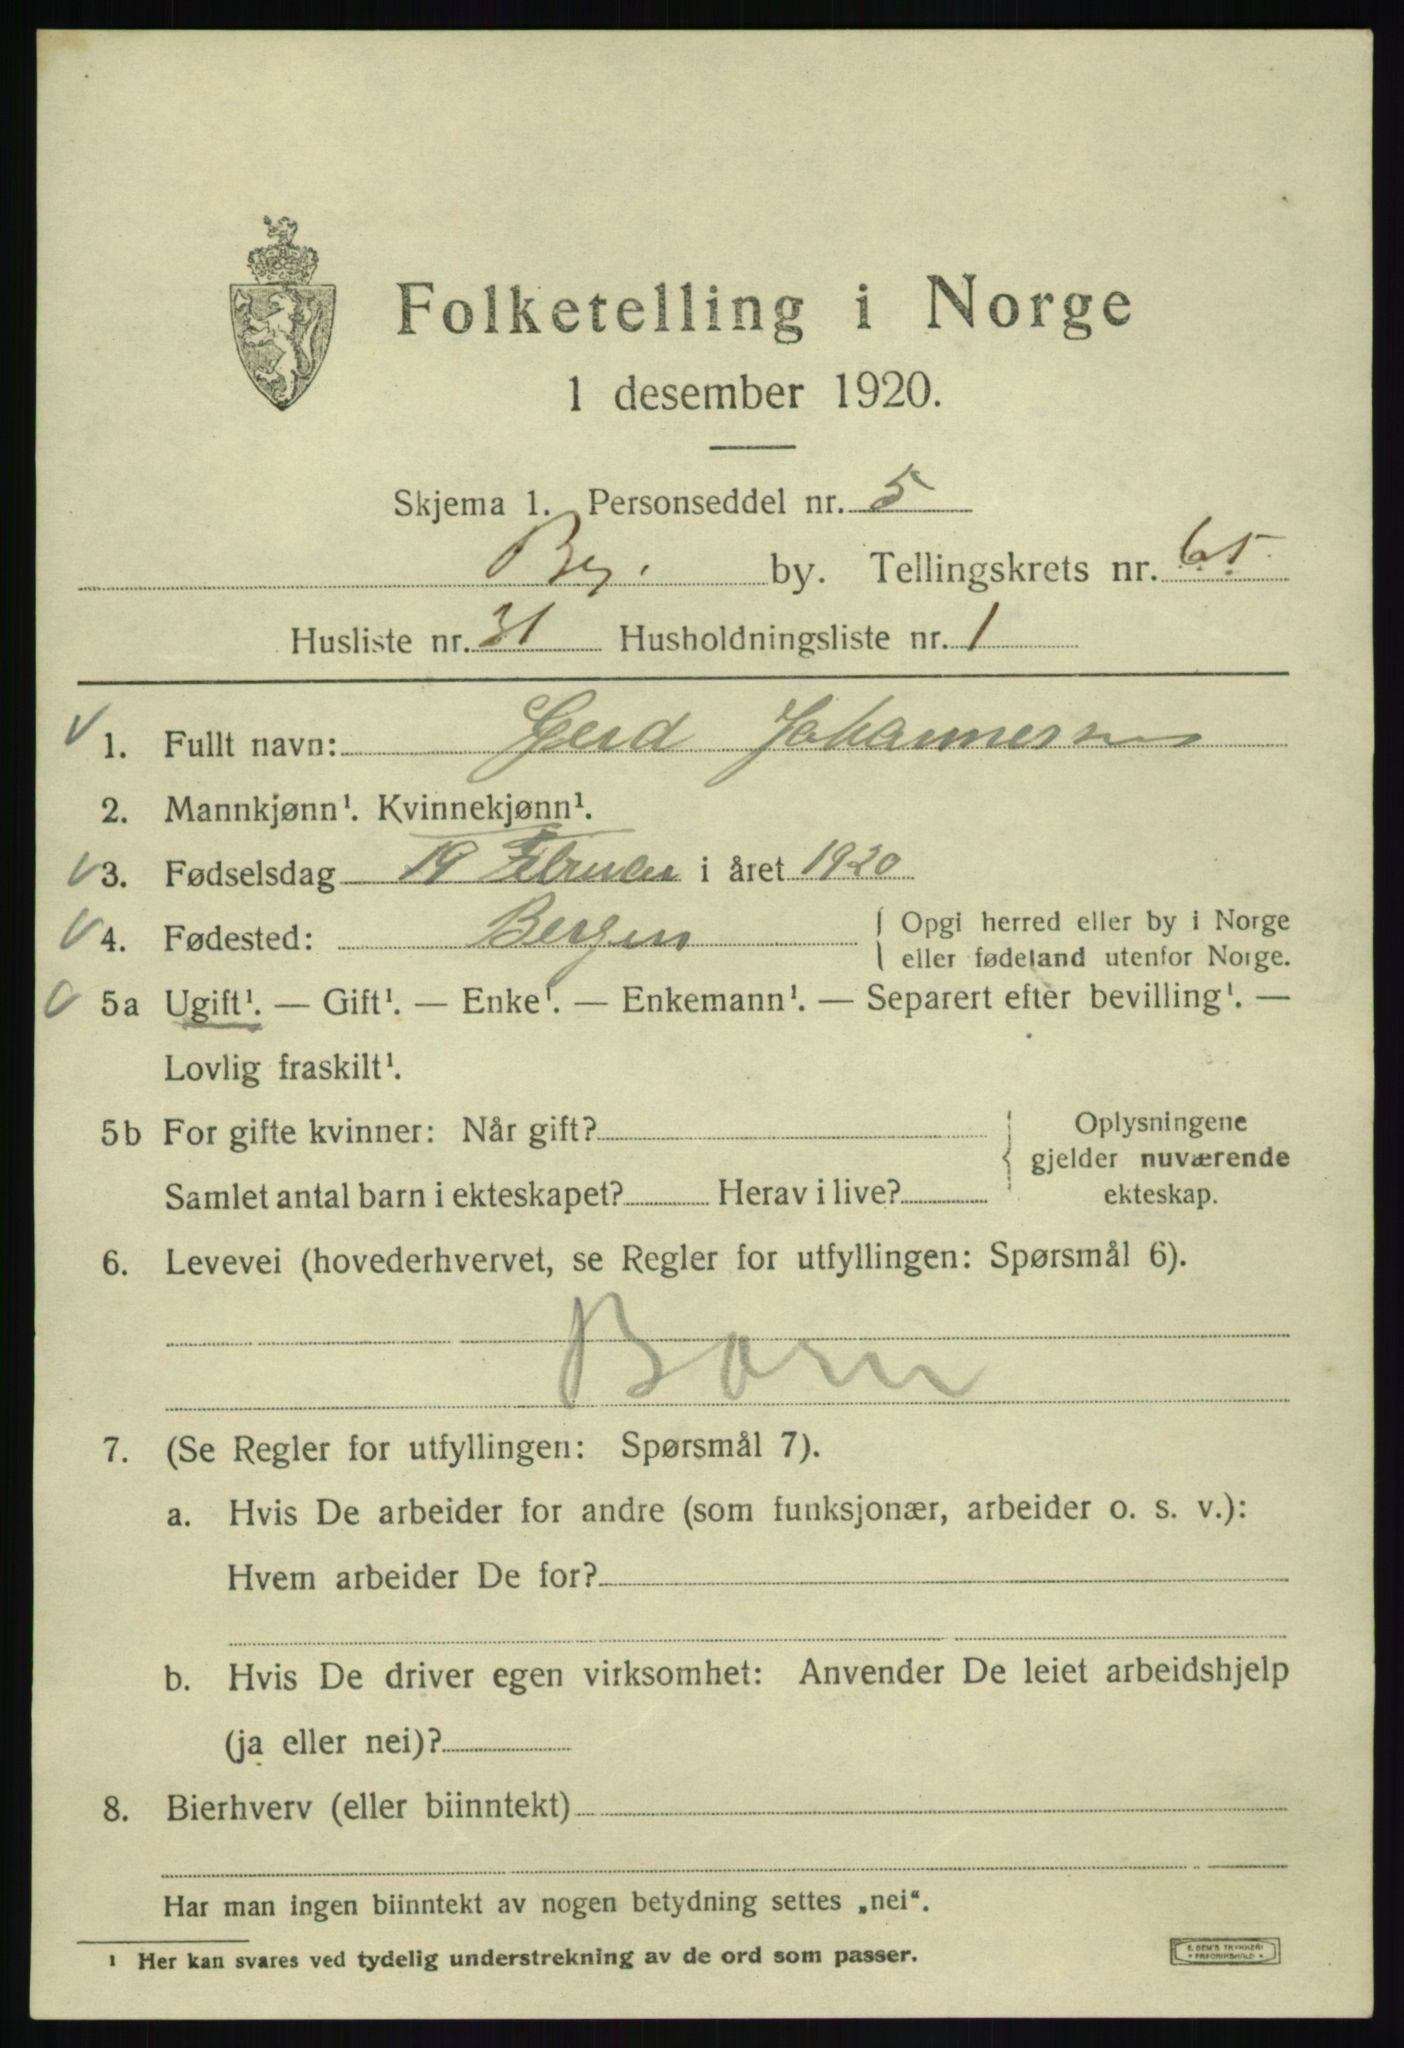 Folketelling i Norge
1 desember 1920.
Skjema 1. Personseddel nr. 5
Bg. by. Tellingskrets nr. 65
Husliste nr. 31 Husholdningsliste nr. 1
1. Fullt navn: Gerd Johannessen
2. Mannkjønn¹. Kvinnekjønn¹.
3. Fødselsdag 19 Februar i året 1920
4. Fødested: Bergen { Opgi herred eller by i Norge
eller fødeland utenfor Norge.
5a Ugift¹. — Gift¹. — Enke¹. — Enkemann¹. — Separert efter bevilling¹. —
Lovlig fraskilt¹.
5b For gifte kvinner: Når gift? { Oplysningene
gjelder nuværende
Samlet antal barn i ekteskapet? Herav i live? ekteskap.
6. Levevei (hovederhvervet, se Regler for utfyllingen: Spørsmål 6).
Barn
7. (Se Regler for utfyllingen: Spørsmål 7).
a. Hvis De arbeider for andre (som funksjonær, arbeider o. s. v.):
Hvem arbeider De for?
b. Hvis De driver egen virksomhet: Anvender De leiet arbeidshjelp
(ja eller nei)?
8. Bierhverv (eller biinntekt)
Har man ingen biinntekt av nogen betydning settes „nei“.
¹ Her kan svares ved tydelig understrekning av de ord som passer.
E. SEM'S TRYKKERI
FREDRIKSHALD